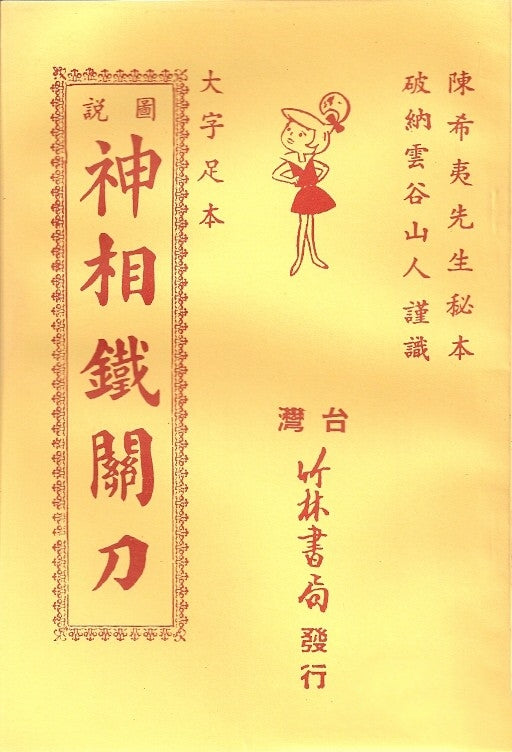 陳希夷先生秘本
破納雲谷山人謹識
台灣
竹林書局
發行
大字足本
圖說
神相鐵關刀